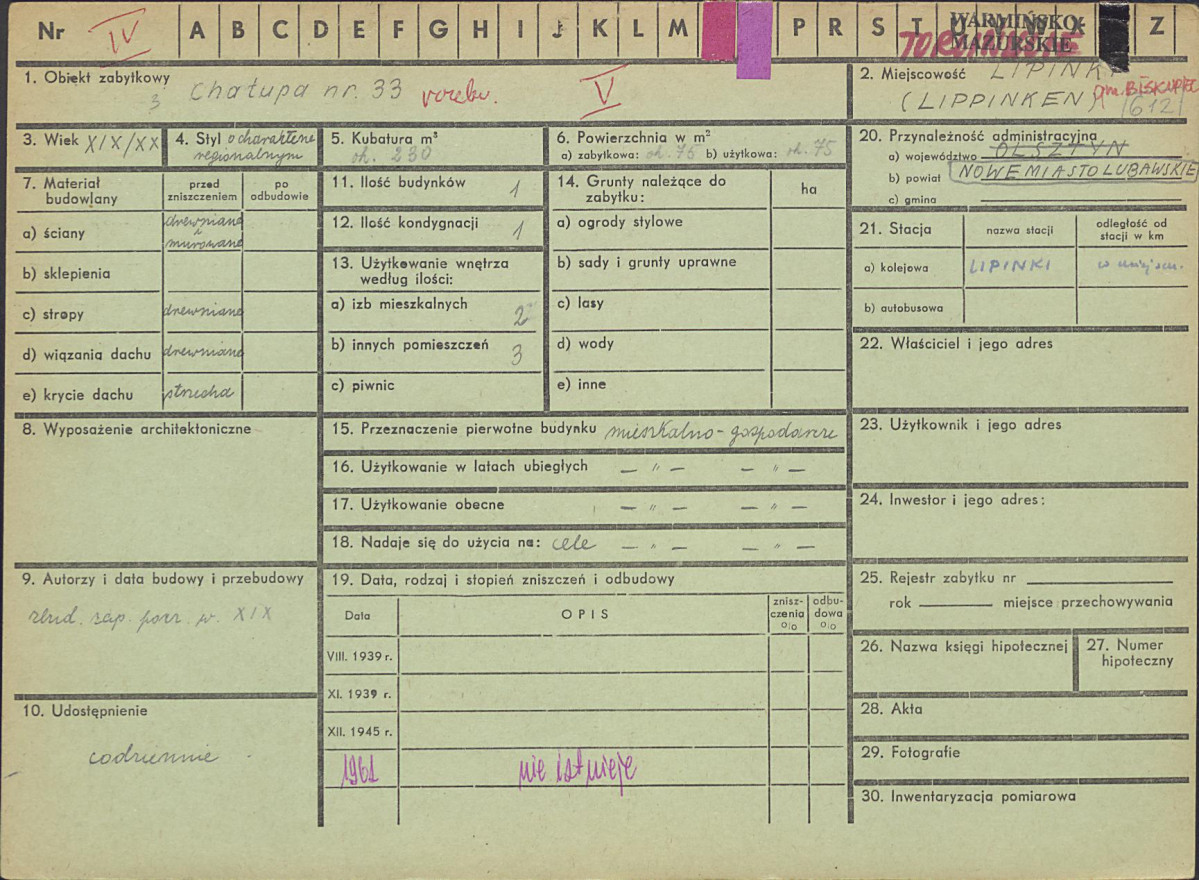 Nr IV A B C D E F G H I J K L M P R S T U Z
WARMIŃSKO-
MAZURSKIE
TORUŃSKIE
1. Obiekt zabytkowy
3 Chałupa nr. 33 V
2. Miejscowość LIPINKI
(LIPPINKEN) gm. BISKUPIEC
1612/
3. Wiek XIX/XX
4. Styl o charakterze
regionalnym
5. Kubatura m³
ok. 230
6. Powierzchnia w m²
a) zabytkowa: ok. 75 b) użytkowa: ok. 75
20. Przynależność administracyjna
a) województwo OLSZTYN
b) powiat NOWE MIASTO LUBAWSKIE
c) gmina
7. Materiał
budowlany
przed
zniszczeniem
po
odbudowie
a) ściany drewniane
i
murowane
b) sklepienia
c) stropy drewniane
d) wiązania dachu drewniane
e) krycie dachu strzecha
11. Ilość budynków 1
12. Ilość kondygnacji 1
13. Użytkowanie wnętrza
według ilości:
a) izb mieszkalnych 2
b) innych pomieszczeń 3
c) piwnic
14. Grunty należące do
zabytku:
ha
a) ogrody stylowe
b) sady i grunty uprawne
c) lasy
d) wody
e) inne
21. Stacja
nazwa stacji
odległość od
stacji w km
a) kolejowa LIPINKI w miejscu.
b) autobusowa
22. Właściciel i jego adres
8. Wyposażenie architektoniczne
15. Przeznaczenie pierwotne budynku mieszkalno-gospodarcze
16. Użytkowanie w latach ubiegłych — " — — " —
17. Użytkowanie obecne — " — — " —
18. Nadaje się do użycia na: cele — " — — " —
23. Użytkownik i jego adres
24. Inwestor i jego adres:
9. Autorzy i data budowy i przebudowy
zbud. zap. pocz. w. XIX
10. Udostępnienie
codziennie
19. Data, rodzaj i stopień zniszczeń i odbudowy
Data
OPIS
znisz-
czenia
o/o
odbu-
dowa
o/o
VIII. 1939 r.
XI. 1939 r.
XII. 1945 r.
1961 nie istnieje
25. Rejestr zabytku nr
rok miejsce przechowywania
26. Nazwa księgi hipotecznej
27. Numer
hipoteczny
28. Akta
29. Fotografie
30. Inwentaryzacja pomiarowa